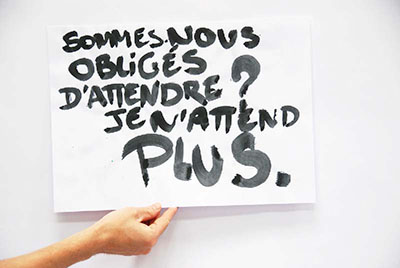 SOMMES-NOUS
OBLIGÉS
D'ATTENDRE ?
JE N'ATTEND
PLUS.